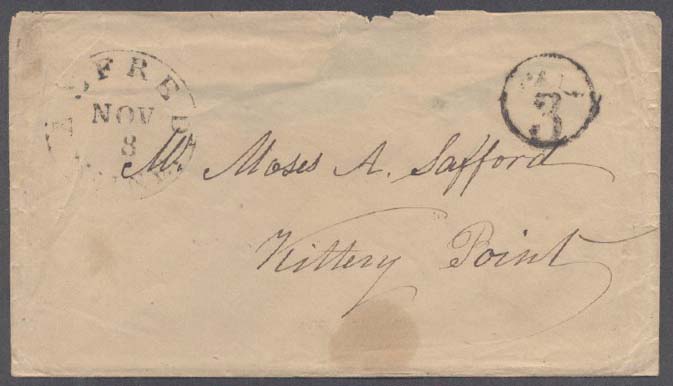 ALFRED
NOV
8
PAID
3
Mr. Moses A. Safford
Kittery Point